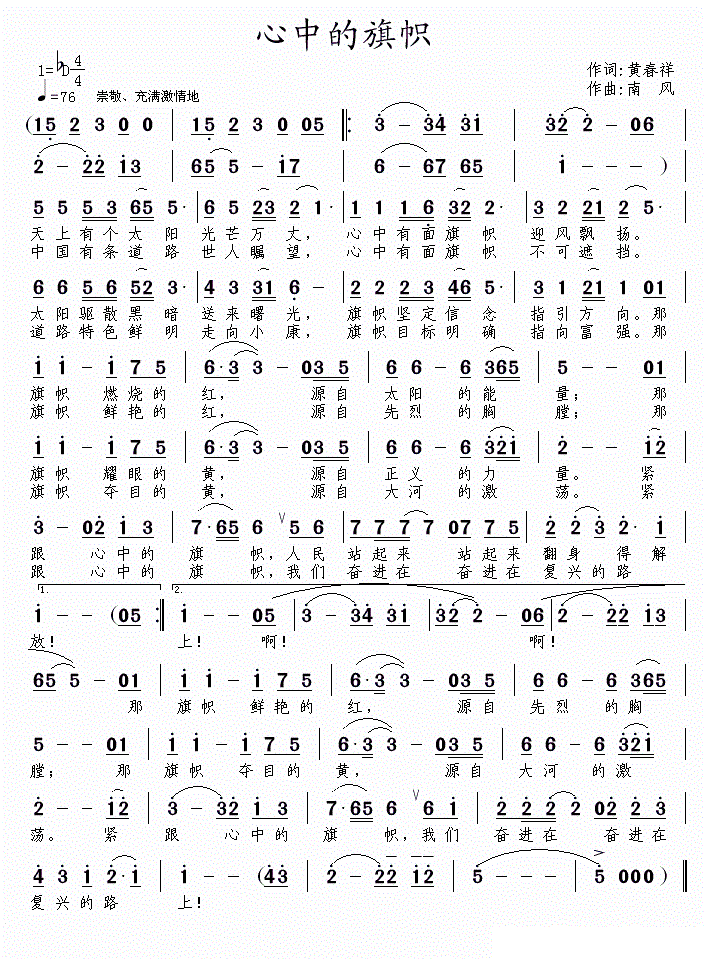 心中的旗帜
1=♭D 4/4
作词:黄春祥
♩=76 崇敬、充满激情地
作曲:南 风
(15 2 3 0 0 | 15 2 3 0 05 |: 3 - 34 31 | 32 2 - 06
2 - 22 13 | 65 5 - 17 | 6 - 67 65 | 1 - - - )
5 5 5 3 65 5· | 6 5 23 2 1· | 1 1 1 6 32 2· | 3 2 21 2 5· |
天上有个太阳 光芒万丈， 心中有面旗帜 迎风飘扬。
中国有条道路 世人瞩望， 心中有面旗帜 不可遮挡。
6 6 5 6 52 3· | 4 3 31 6 - | 2 2 2 3 46 5· | 3 21 1 01 |
太阳驱散黑暗 送来曙光， 旗帜坚定信念 指引方向。那
道路特色鲜明 走向小康， 旗帜目标明确 指向富强。那
1 1 - 1 7 5 | 6·3 3 - 03 5 | 6 6 - 6 365 | 5 - - 01 |
旗帜 燃烧的 红， 源自 太阳 的能 量； 那
旗帜 鲜艳的 红， 源自 先烈 的胸 膛； 那
1 1 - 1 7 5 | 6·3 3 - 03 5 | 6 6 - 6 321 | 2 - - 12 |
旗帜 耀眼的 黄， 源自 正义 的力 量。 紧
旗帜 夺目的 黄， 源自 大河 的激 荡。 紧
3 - 02 1 3 | 7·65 6 ∨ 5 6 | 7 7 7 7 07 7 5 | 2 2 3 2· 1
跟 心中的 旗 帜，人民 站起来 站起来 翻身 得解
跟 心中的 旗 帜，我们 奋进在 奋进在 复兴的路
1. 2.
1 - - (05 :| 1 - - 05 | 3 - 34 31 | 32 2 - 06 | 2 - 22 13 |
放！ 上！ 啊！ 啊！
65 5 - 01 | 1 1 - 1 7 5 | 6·3 3 - 03 5 | 6 6 - 6 365 |
那 旗帜 鲜艳的 红， 源自 先烈 的胸
5 - - 01 | 1 1 - 1 7 5 | 6·3 3 - 03 5 | 6 6 - 6 321 |
膛； 那 旗帜 夺目的 黄， 源自 大河 的激
2 - - 12 | 3 - 32 1 3 | 7·65 6 ∨ 6 1 | 2 2 2 2 02 2 3 |
荡。 紧 跟 心中的 旗 帜，我们 奋进在 奋进在
4 3 1 2·1 | 1 - - (43 | 2 - 22 12 | 5 - - - | 5 000 ) ‖
复兴的路 上！